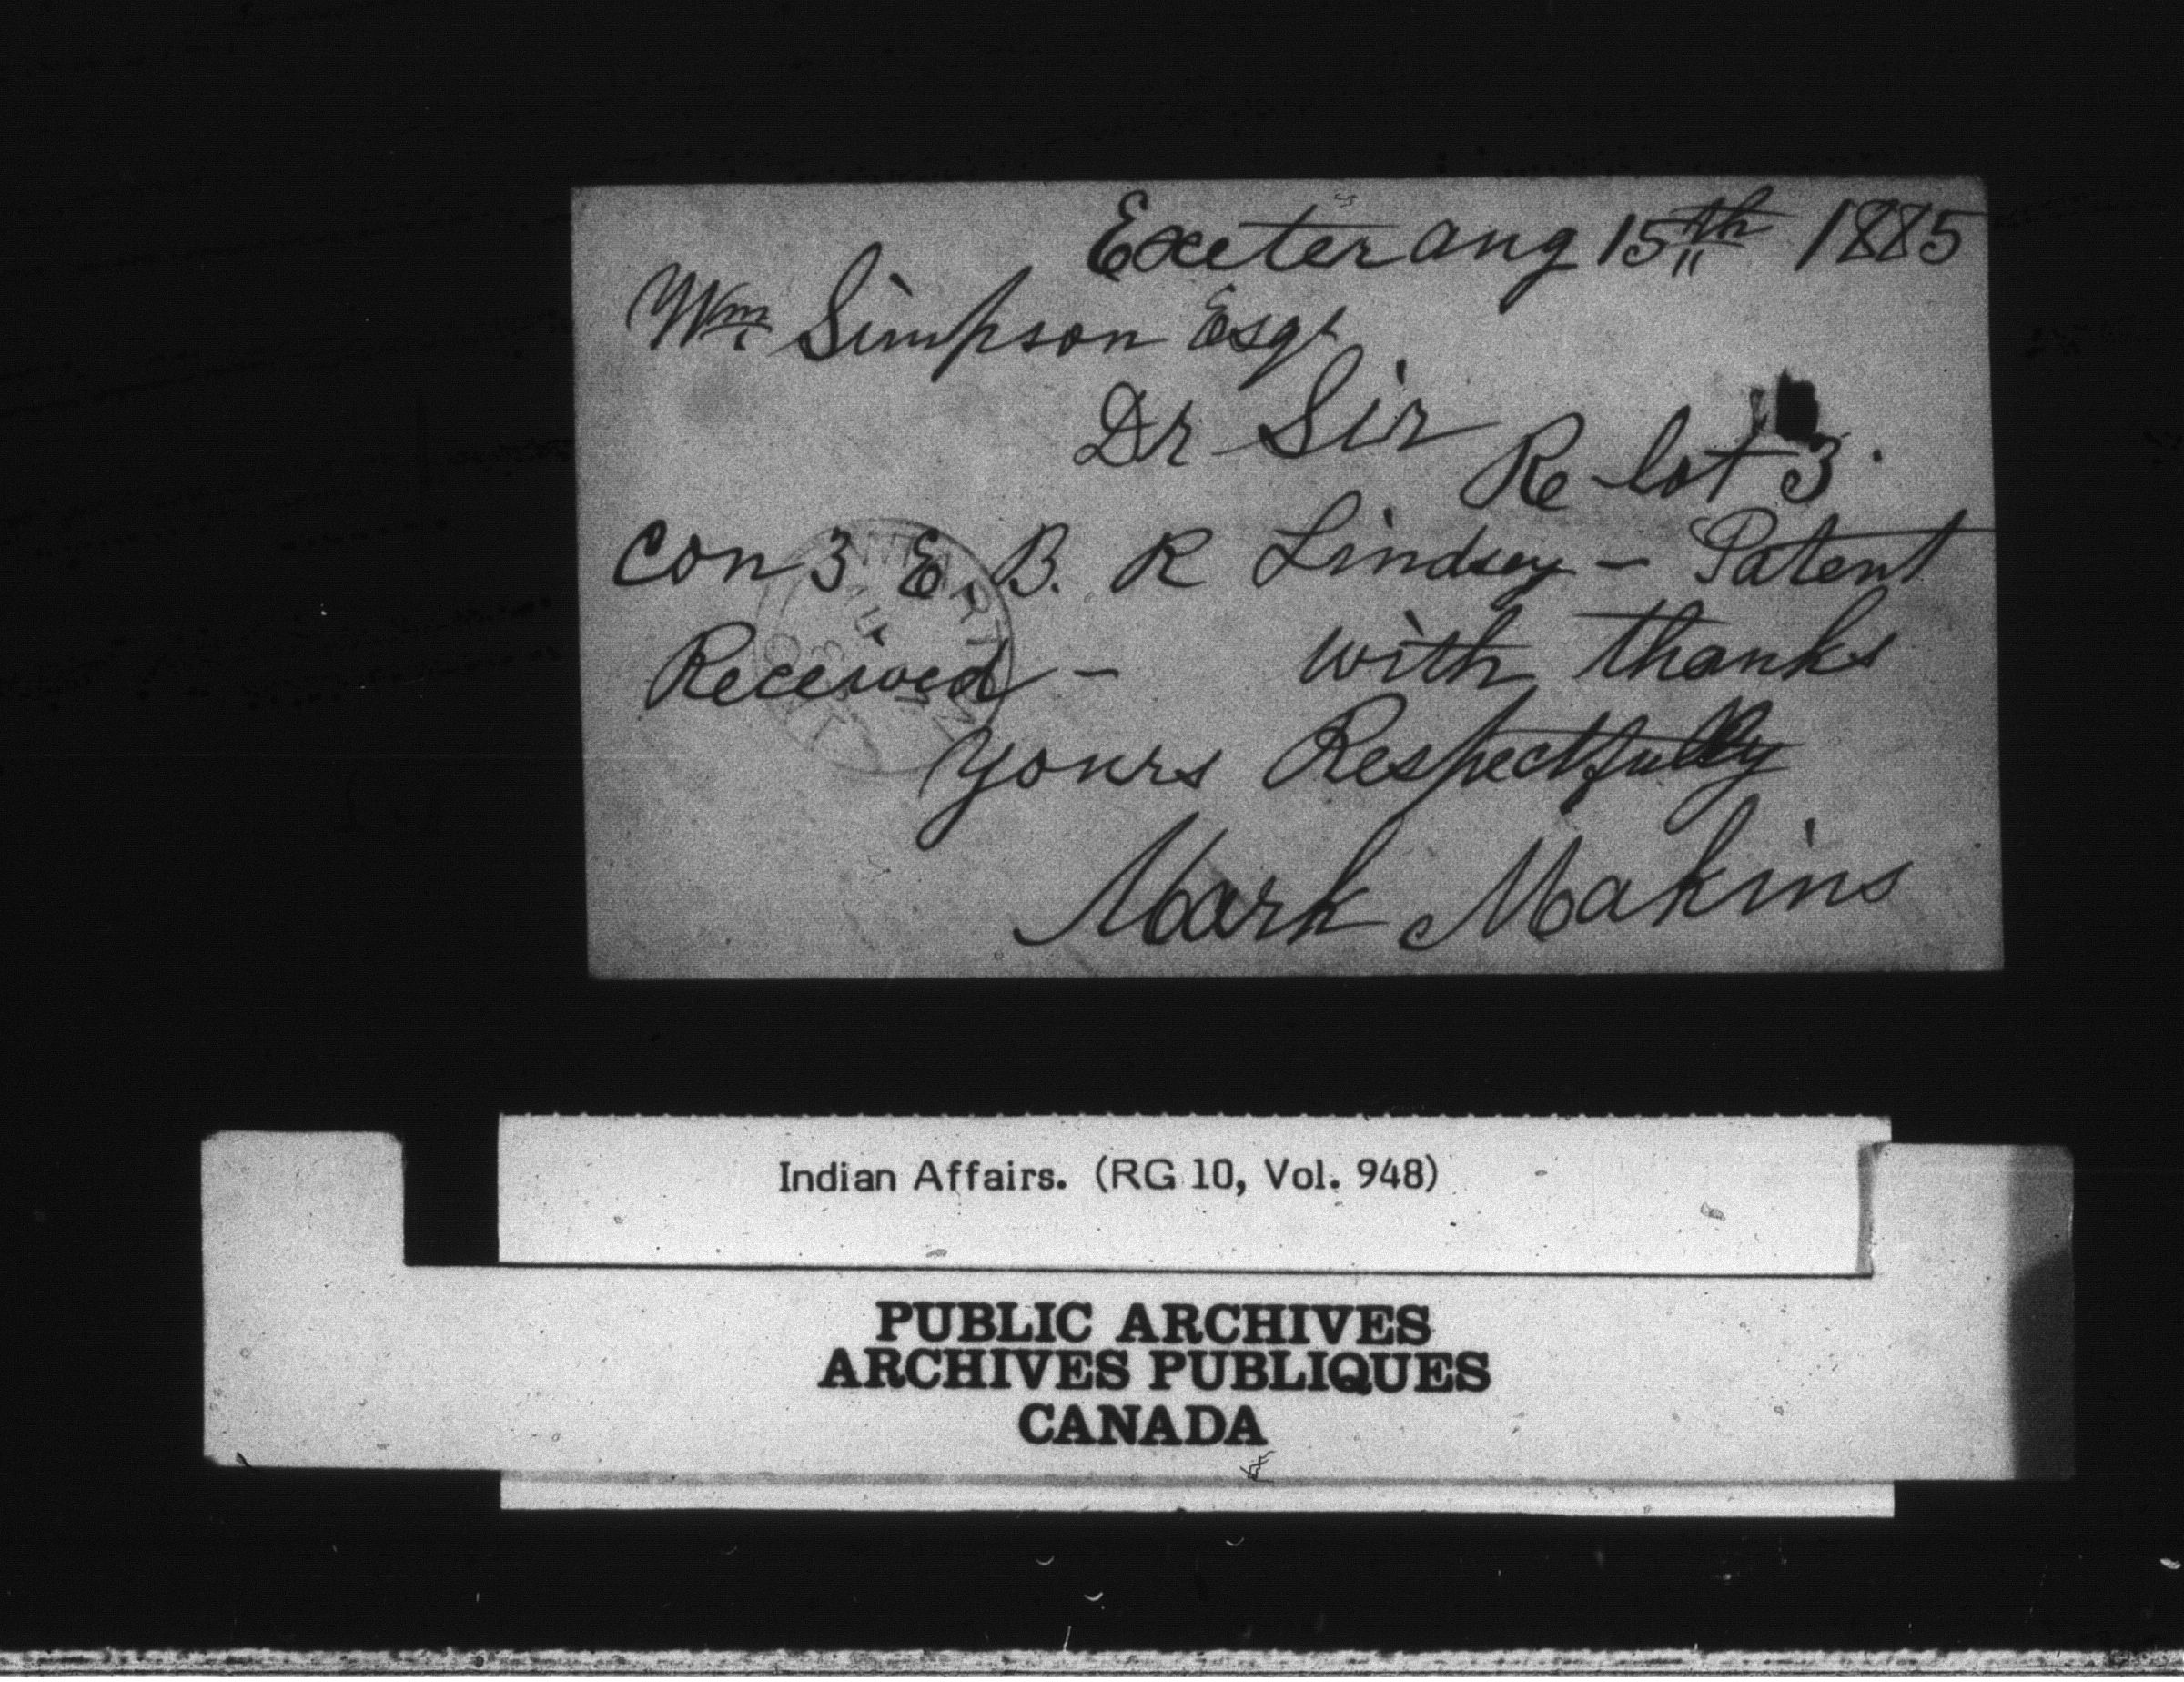 Exeter aug 15th 1885
Wm Simpson Esqr
Dr Sir
Re lot 3.
Con 3 E. B. R Lindsey - Patent
Received - with thanks
Yours Respectfully
Mark Makins
Indian Affairs. (RG 10, Vol. 948)
PUBLIC ARCHIVES
ARCHIVES PUBLIQUES
CANADA